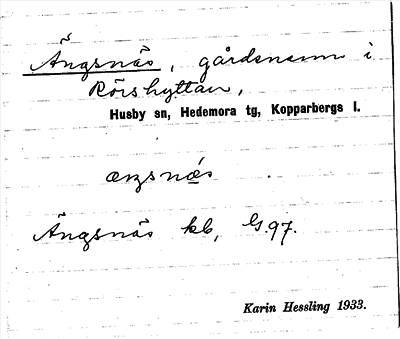 Ängsnäs, gårdsnamn i
Rörshyttan,
Husby sn, Hedemora tg, Kopparbergs l.
æŋsnǽs
Ängsnäs kb, G.97.
Karin Hessling 1933.